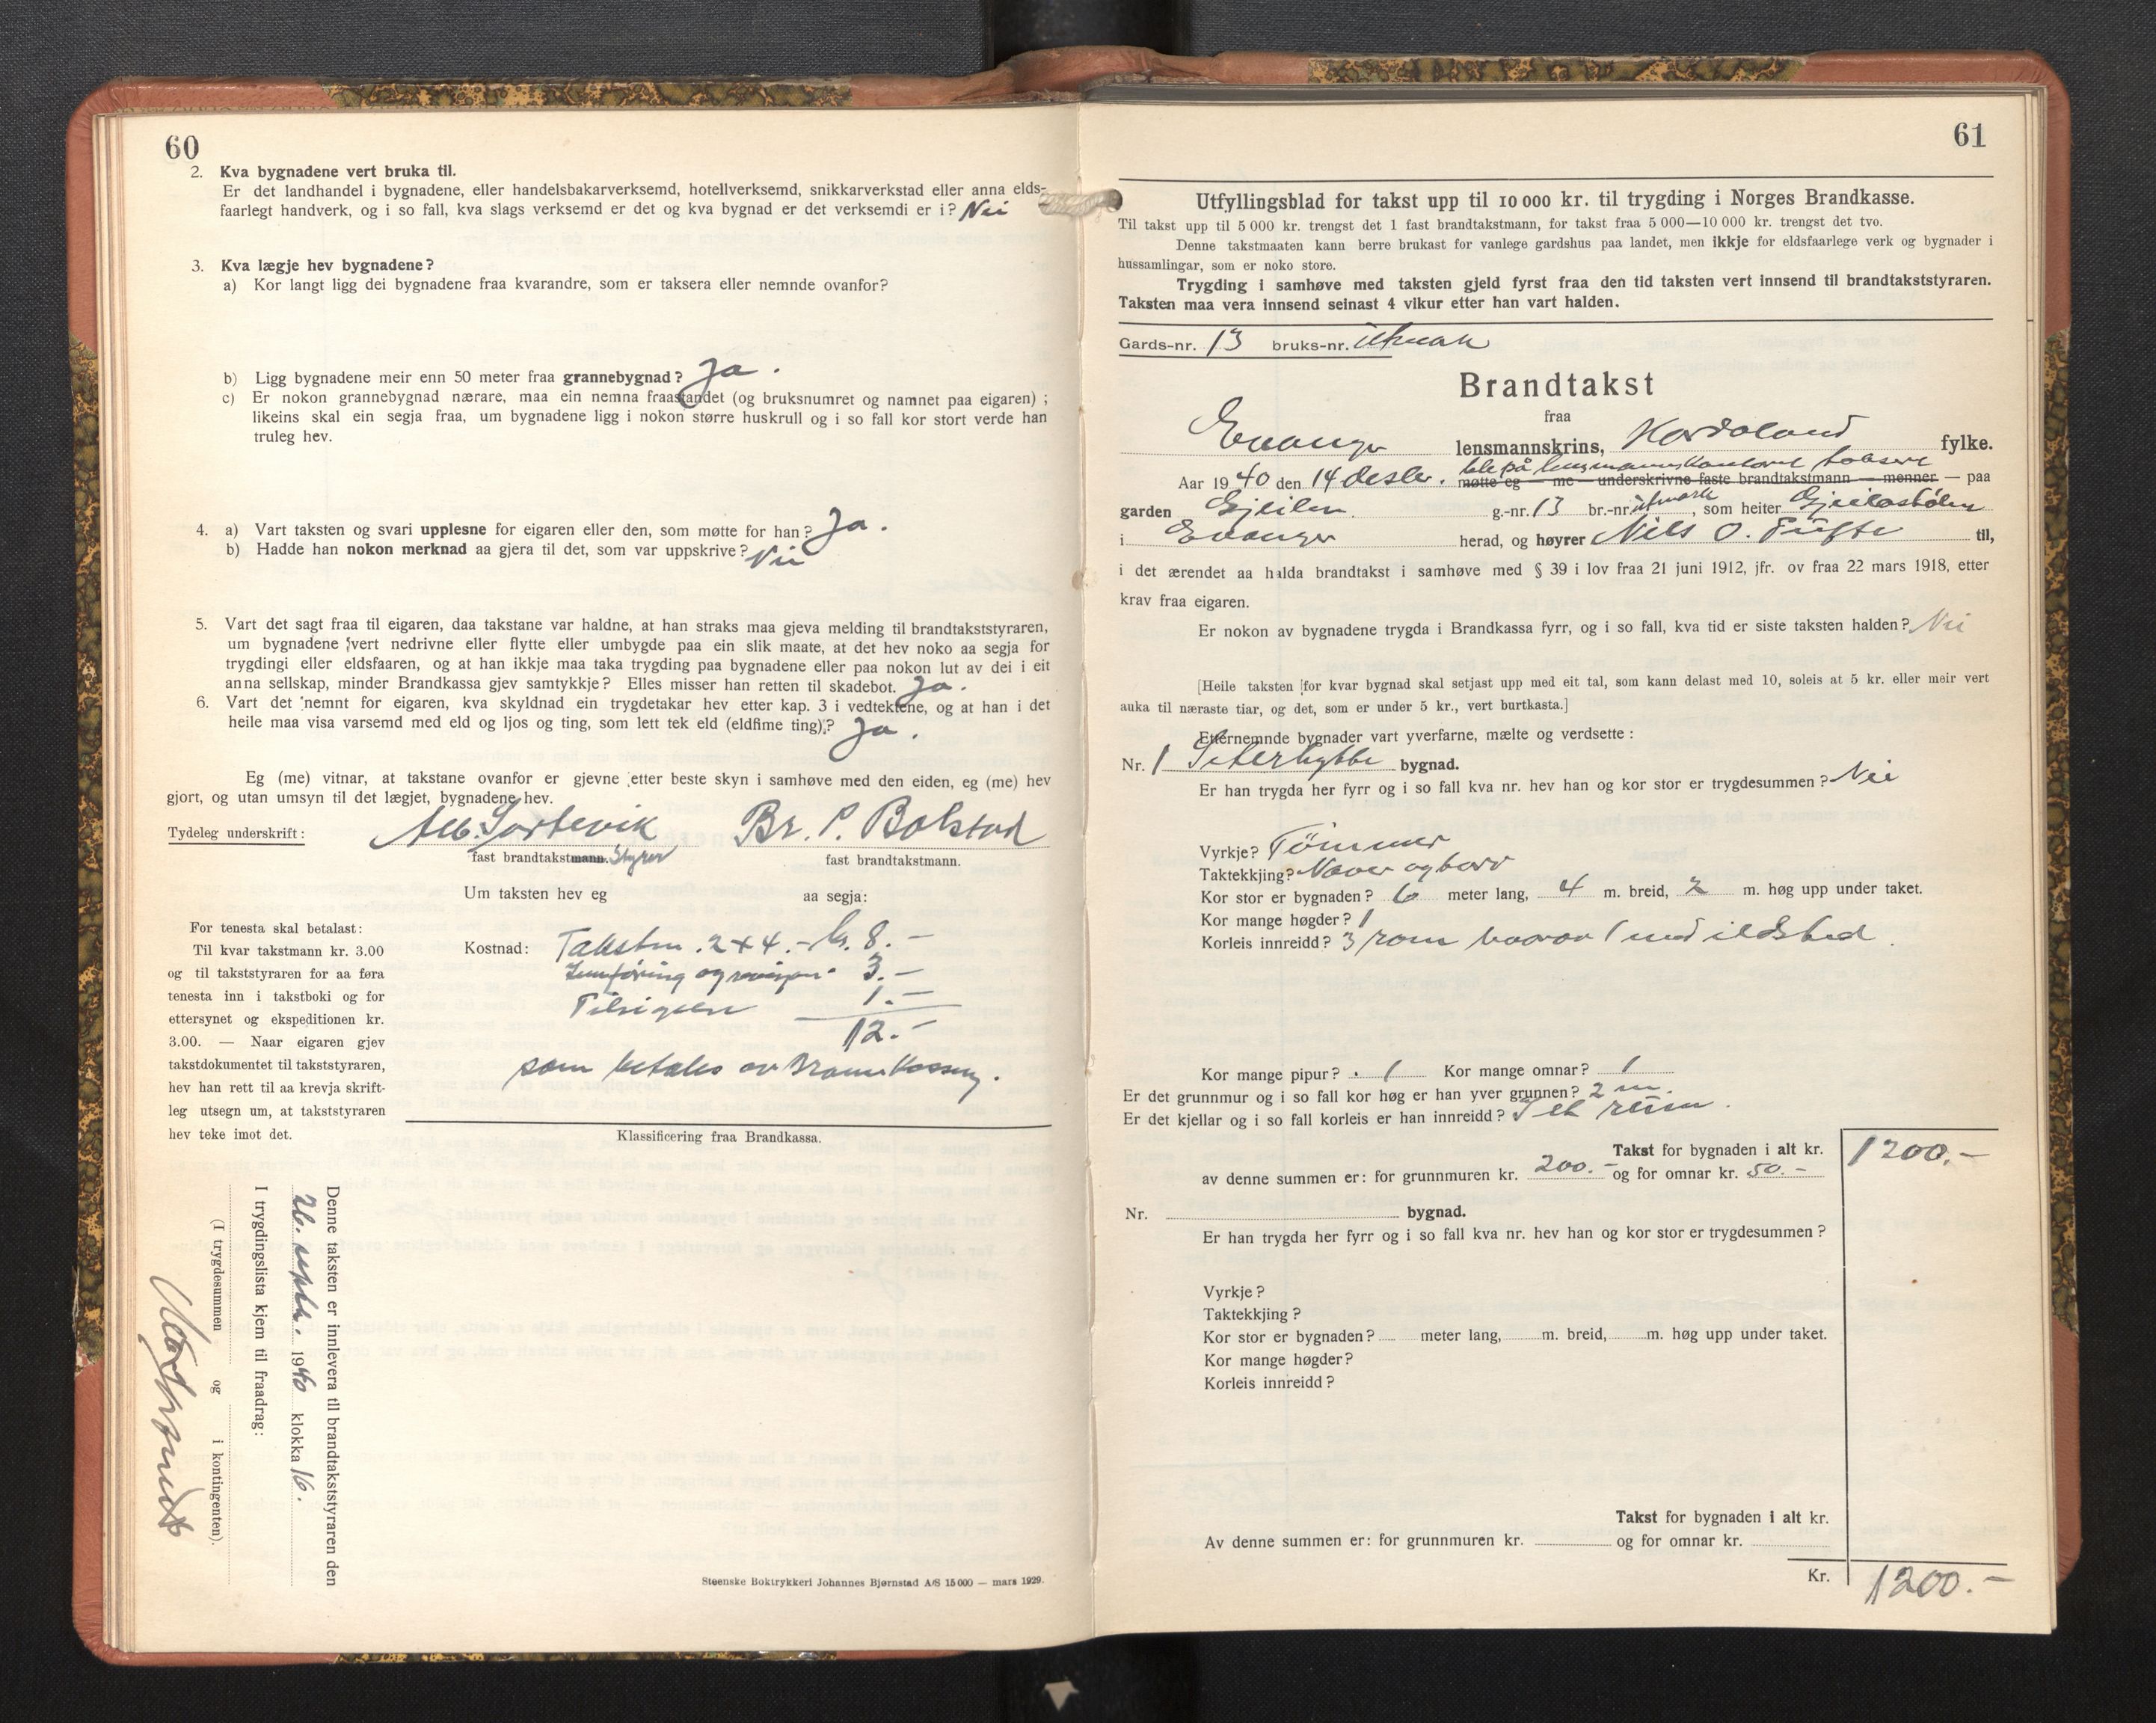 60
2. Kva bygnadene vert bruka til.
Er det landhandel i bygnadene, eller handelsbakarverksemd, hotellverksemd, snikkarverkstad eller anna elds-
faarlegt handverk, og i so fall, kva slags verksemd er det og kva bygnad er det verksemdi er i? Nei
3. Kva lægje hev bygnadene?
a) Kor langt ligg dei bygnadene fraa kvarandre, som er taksera eller nemnde ovanfor?
b) Ligg bygnadene meir enn 50 meter fraa grannebygnad? Ja.
c) Er nokon grannebygnad nærare, maa ein nemna fraastandet (og bruksnumret og namnet paa eigaren) ;
likeins skal ein segja fraa, um bygnadene ligg i nokon større huskrull og i so fall kor stort verde han
truleg hev.
4. a) Vart taksten og svari upplesne for eigaren eller den, som møtte for han? Ja.
b) Hadde han nokon merknad aa gjera til det, som var uppskrive? Nei
5. Vart det sagt fraa til eigaren, daa takstane var haldne, at han straks maa gjeva melding til brandtakststyraren,
um bygnadene vert nedrivne eller flytte eller umbygde paa ein slik maate, at det hev noko aa segja for
trygdingi eller eldsfaaren, og at han ikkje maa taka trygding paa bygnadene eller paa nokon lut av dei i eit
anna sellskap, minder Brandkassa gjev samtykkje? Elles misser han retten til skadebot. Ja.
6. Vart det nemnt for eigaren, kva skyldnad ein trygdetakar hev etter kap. 3 i vedtektene, og at han i det
heile maa visa varsemd med eld og ljos og ting, som lett tek eld (eldfime ting)? Ja.
Eg (me) vitnar, at takstane ovanfor er gjevne etter beste skyn i samhøve med den eiden, eg (me) hev
gjort, og utan umsyn til det lægjet, bygnadene hev.
Tydeleg underskrift: Alb. Sortevik Br. P. Bolstad
fast brandtakstmann. Styrer fast brandtakstmann.
Um taksten hev eg aa segja:
For tenesta skal betalast:
Til kvar takstmann kr. 3.00
og til takststyraren for aa føra
tenesta inn i takstboki og for
ettersynet og ekspeditionen kr.
3.00. — Naar eigaren gjev
takstdokumentet til takststyraren,
hev han rett til aa krevja skrift-
leg utsegn um, at takststyraren
hev teke imot det.
Kostnad: Takstm. 2 + 4.- kr. 8.-
Innføring og revisjon " 3.-
1.-
12.-
som betales av Brannkassen.
Klassificering fraa Brandkassa.
Denne taksten er innlevera til brandtakststyraren den
26. septbr. 1940 klokka 16.
I trygdingslista kjem til fraadrag:
(I trygdesummen og i kontingenten).
Steenske Boktrykkeri Johannes Bjørnstad A/S 15000 — mars 1929.
61
Utfyllingsblad for takst upp til 10 000 kr. til trygding i Norges Brandkasse.
Til takst upp til 5 000 kr. trengst det 1 fast brandtakstmann, for takst fraa 5 000—10 000 kr. trengst det tvo.
Denne takstmaaten kann berre brukast for vanlege gardshus paa landet, men ikkje for eldsfaarlege verk og bygnader i
hussamlingar, som er noko store.
Trygding i samhøve med taksten gjeld fyrst fraa den tid taksten vert innsend til brandtakststyraren.
Taksten maa vera innsend seinast 4 vikur etter han vart halden.
Gards-nr. 13 bruks-nr. utmark
Brandtakst
fraa
Evanger lensmannskrins, Hordaland fylke.
ble på lensmannskontoret taksert
Aar 1940 den 14 desbr. møtte eg — me — underskrivne faste brandtakstmann — menner — paa
garden Gjeilen. g.-nr. 13 br.-nr. utmark, som heiter Gjeilastølen
i Evanger herad, og høyrer Nils O. Tufte til,
i det ærendet aa halda brandtakst i samhøve med § 39 i lov fraa 21 juni 1912, jfr. ov fraa 22 mars 1918, etter
krav fraa eigaren.
Er nokon av bygnadene trygda i Brandkassa fyrr, og i so fall, kva tid er siste taksten halden? Nei
[Heile taksten for kvar bygnad skal setjast upp med eit tal, som kann delast med 10, soleis at 5 kr. eller meir vert
auka til næraste tiar, og det, som er under 5 kr., vert burtkasta.]
Etternemnde bygnader vart yverfarne, mælte og verdsette :
Nr. 1 Seterhytte bygnad.
Er han trygda her fyrr og i so fall kva nr. hev han og kor stor er trygdesummen? Nei
Vyrkje? Tømmer
Taktekkjing? Næver og torv
Kor stor er bygnaden? 6 meter lang, 4 m. breid, 2 m. høg upp under taket.
Kor mange høgder? 1
Korleis innreidd? 3 rom hvorav 1 med ildsted.
Kor mange pipur? 1 Kor mange omnar? 1
Er det grunnmur og i so fall kor høg er han yver grunnen? 2 m.
Er det kjellar og i so fall korleis er han innreidd? I et rum.
Takst for bygnaden i alt kr. 1200.-
av denne summen er: for grunnmuren kr. 200.- og for omnar kr. 50.-
Nr. bygnad.
Er han trygda her fyrr og i so fall kva nr. hev han og kor stor er trygdesummen?
Vyrkje?
Taktekkjing?
Kor stor er bygnaden? meter lang, m. breid, m. høg upp under taket.
Kor mange høgder?
Korleis innreidd?
Takst for bygnaden i alt kr.
Av denne summen er: for grunnmuren kr. og for omnar kr.
Kr. 1200.-